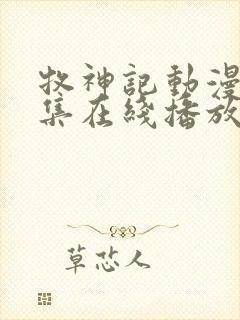 牧神記動漫
集在綫播放
草芯人